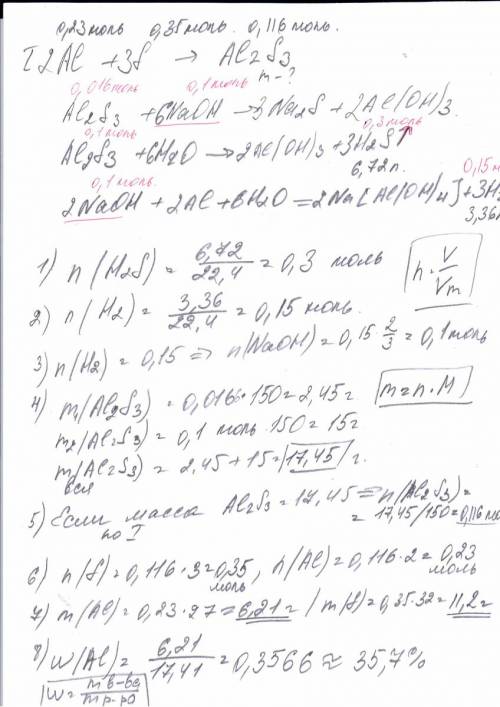 0,23моль 0,35моль. 0,116моль.
I 2Al + 3S → Al2S3
m-?
0,016моль 0,1моль
Al2S3 + 6NaOH → 3Na2S + 2Al(OH)3.
0,1моль 0,3моль
Al2S3 + 6H2O → 2Al(OH)3 + 3H2S↑
6,72л.
0,1моль. 0,15м
2NaOH + 2Al + 6H2O = 2Na[Al(OH)4] + 3H2
3,36л
1) n(H2S) = 6,72/22,4 = 0,3 моль
n = V/Vm
2) n(H2) = 3,36/22,4 = 0,15 моль.
3) n(H2) = 0,15 => n(NaOH) = 0,15·2/3 = 0,1моль
4) m1(Al2S3) = 0,0166·150 = 2,45г
m=n·M
m2(Al2S3) = 0,1 моль·150 = 15г
m(Al2S3) = 2,45 + 15 = 17,45 г.
вся
5) Если масса Al2S3 = 17,45 => n(Al2S3) =
по I = 17,45/150 = 0,116мо
6) n(S) = 0,116·3 = 0,35 моль, n(Al) = 0,116·2 = 0,23 моль
7) m(Al) = 0,23·27 = 6,21г / m(S) = 0,35·32 = 11,2г
8) W(Al) = 6,21/17,41 = 0,3566 ≈ 35,7%
W = m в-ва/m р-ра